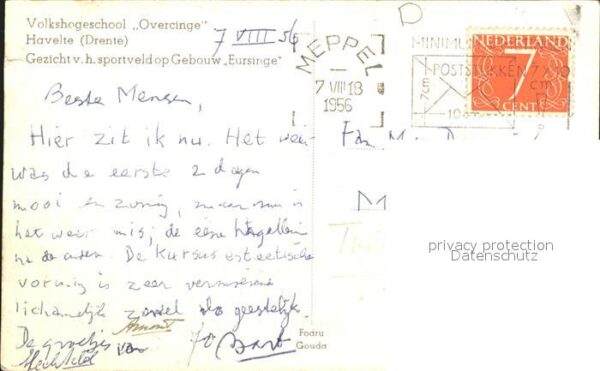 Volkshogeschool „Overcinge"
Havelte (Drente)
Gezicht v. h. sportveld op Gebouw „Eursinge"
7 VIII 56
MEPPEL
7 VIII 18
1956
D
MINIMU
POSTST KKEN 7 x 10
cm
NEDERLAND
7
CENT
Beste Mensen,
Hier zit ik nu. Het weer
was de eerste 2 dagen
mooi en zonnig, maar nu is
het weer mis, de ene hagelbui
na de andere. De kursus esthetische
vorming is zeer vermoeiend
lichamelijk zowel als geestelijk
De groetjes van
Bart
Fam. M
M
privacy protection
Datenschutz
Fodru
Gouda